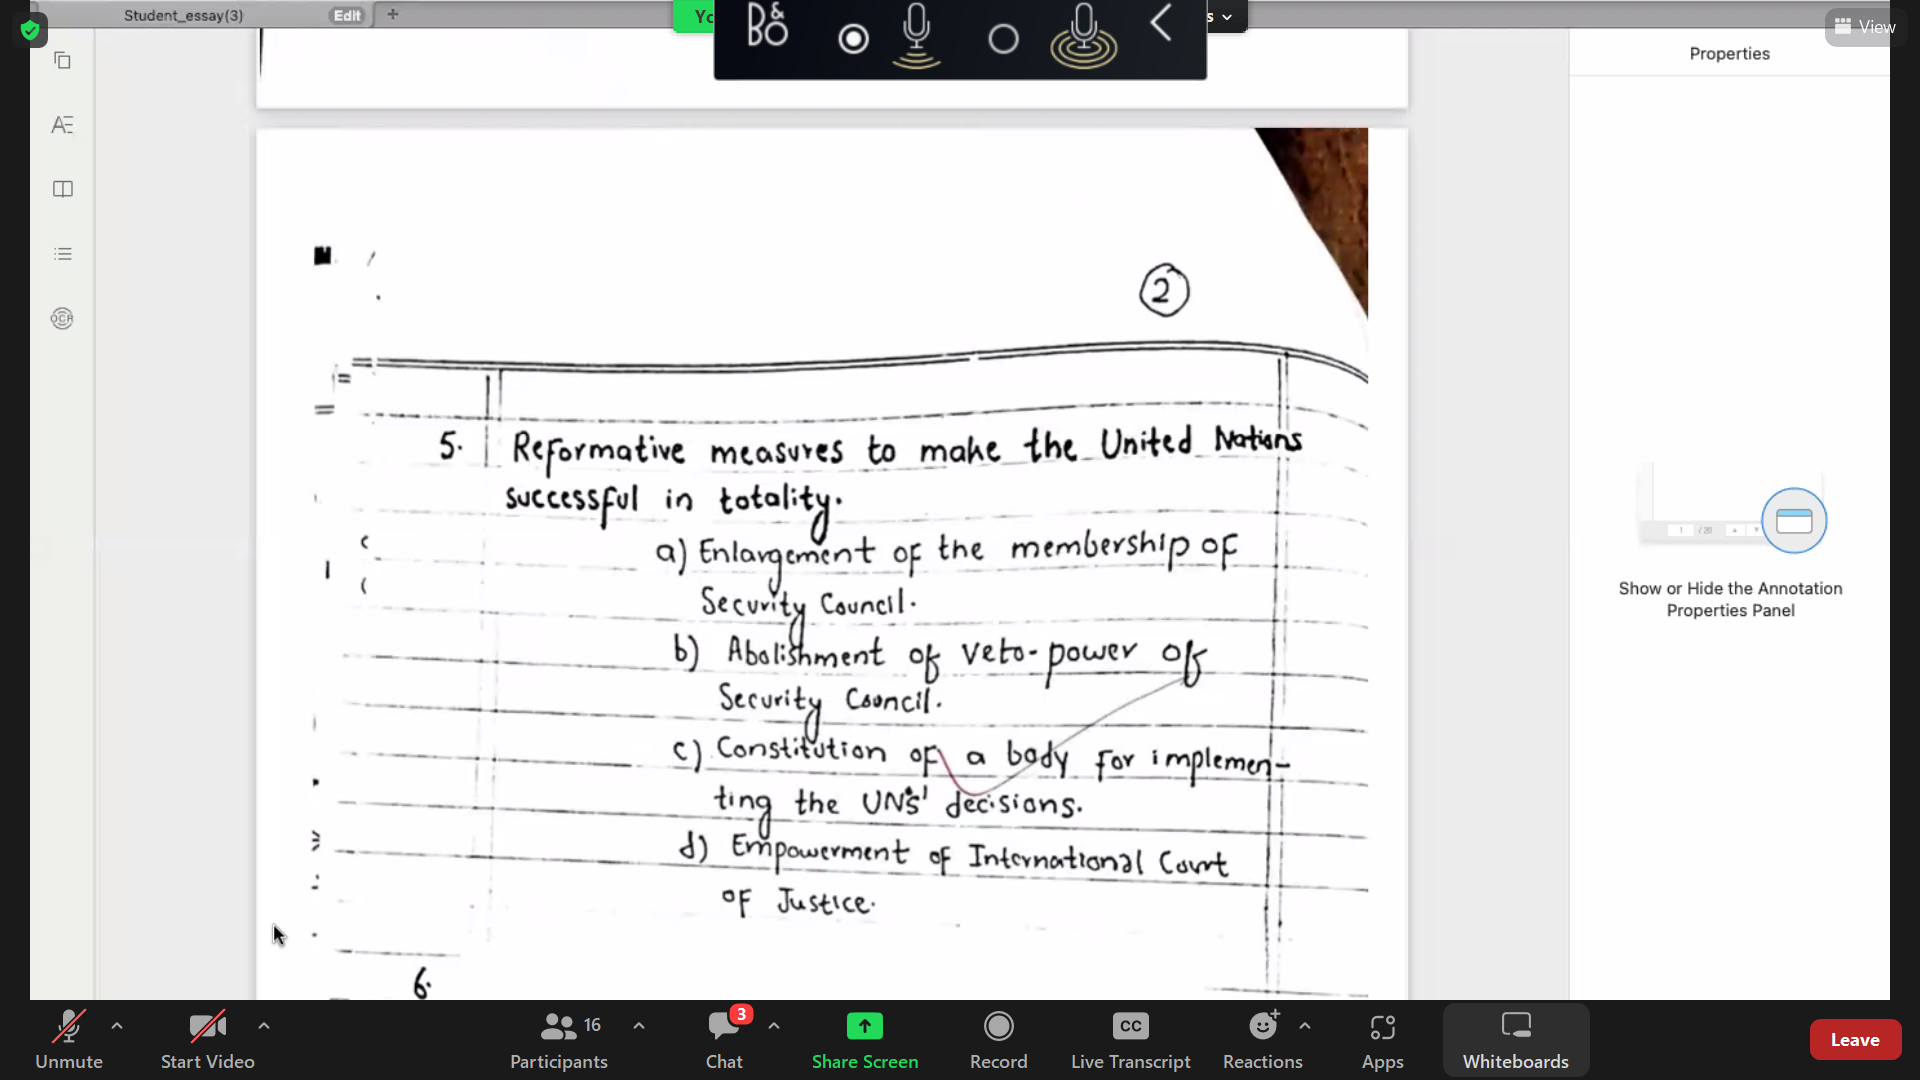 Student_essay(3)
Edit
+
Yo
s
View
B&O
Properties
2
5. Reformative measures to make the United Nations
successful in totality.
a) Enlargement of the membership of
Security Council.
b) Abolishment of veto-power of
Security Council.
c) Constitution of a body for implemen-
ting the UN's' decisions.
d) Empowerment of International Court
of Justice.
6.
OCR
Show or Hide the Annotation
Properties Panel
Unmute
Start Video
16
Participants
3
Chat
Share Screen
Record
CC
Live Transcript
Reactions
Apps
Whiteboards
Leave